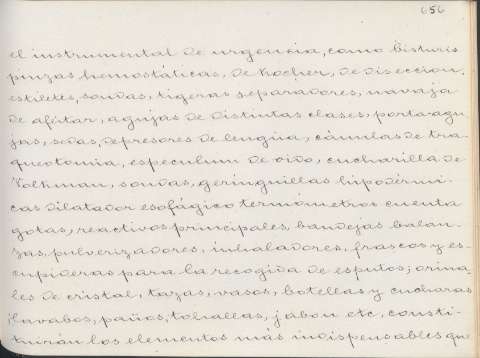 656
el instrumental de urgencia, como bisturis
pinzas hemostáticas, de Kocher, de diseccion,
estiletes, sondas, tigeras separadores, navaja
de afeitar, agujas de distintas clases, portaagu
jas, sedas, depresores de lengua, cánulas de tra-
queotomia, especulum de oido, cucharilla de
Volkman, sondas, geringuillas hipodérmi-
cas dilatador esofágico termómetros cuenta
gotas, reactivos principales, bandejas balan
zas, pulverizadores, inhaladores, frascos y es-
cupideras para la recogida de esputos; orina
les de cristal, tazas, vasos, botellas y cucharas
lavabos, paños, tohallas, jabon etc, consti-
tuirán los elementos más indispensables que